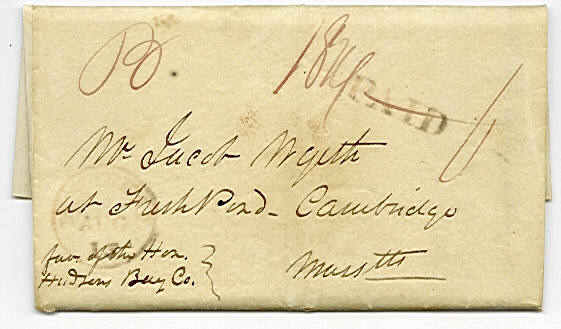 PAID
Mr Jacob Wyeth
at Fresh Pond - Cambridge
Masstts
fav. of the Hon.
Hudsons Bay Co.